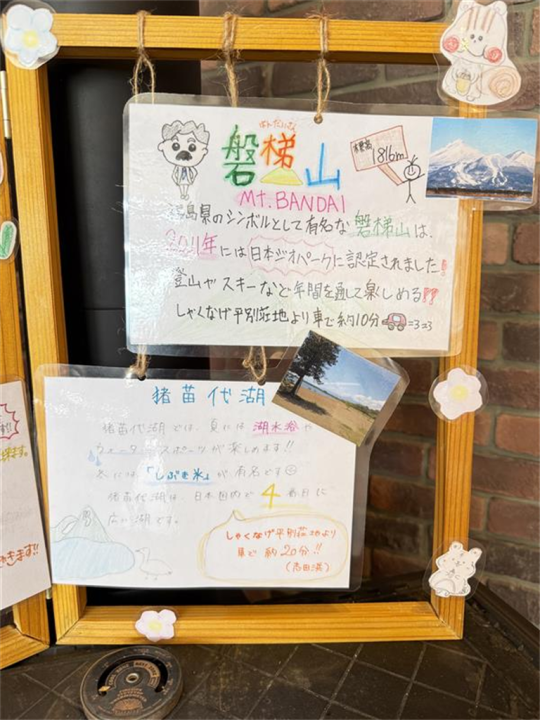 ばんだいさん
磐梯山
標高
1816m
Mt. BANDAI
島県のシンボルとして有名な磐梯山は、
2011年には日本ジオパークに認定されました!
登山やスキーなど年間を通して楽しめる!!
しゃくなげ平別荘地より車で約10分
猪苗代湖
猪苗代湖では、夏には湖水浴や
ウォータースポーツが楽しめます!!
冬には「しぶき氷」が有名です
猪苗代湖は、日本国内で4番目に
広い湖です。
しゃくなげ平別荘地より
車で約20分!!
(志田浜)
きます!!